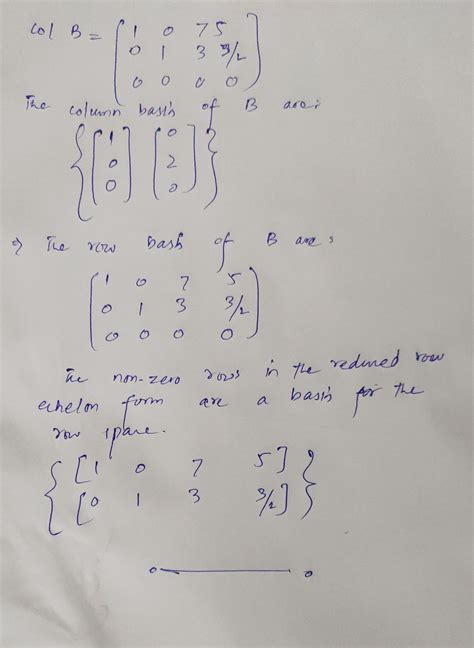 Col B = [ 1 0 7 5
0 1 3 3/2
0 0 0 0 ]
The column basis of B are:
{ [ 1 0 0 ] [ 0 2 0 ] }
⇒ The row basis of B are:
[ 1 0 7 5
0 1 3 3/2
0 0 0 0 ]
The non-zero rows in the reduced row
echelon form are a basis for the
row space.
{ [1 0 7 5]
[0 1 3 3/2] }